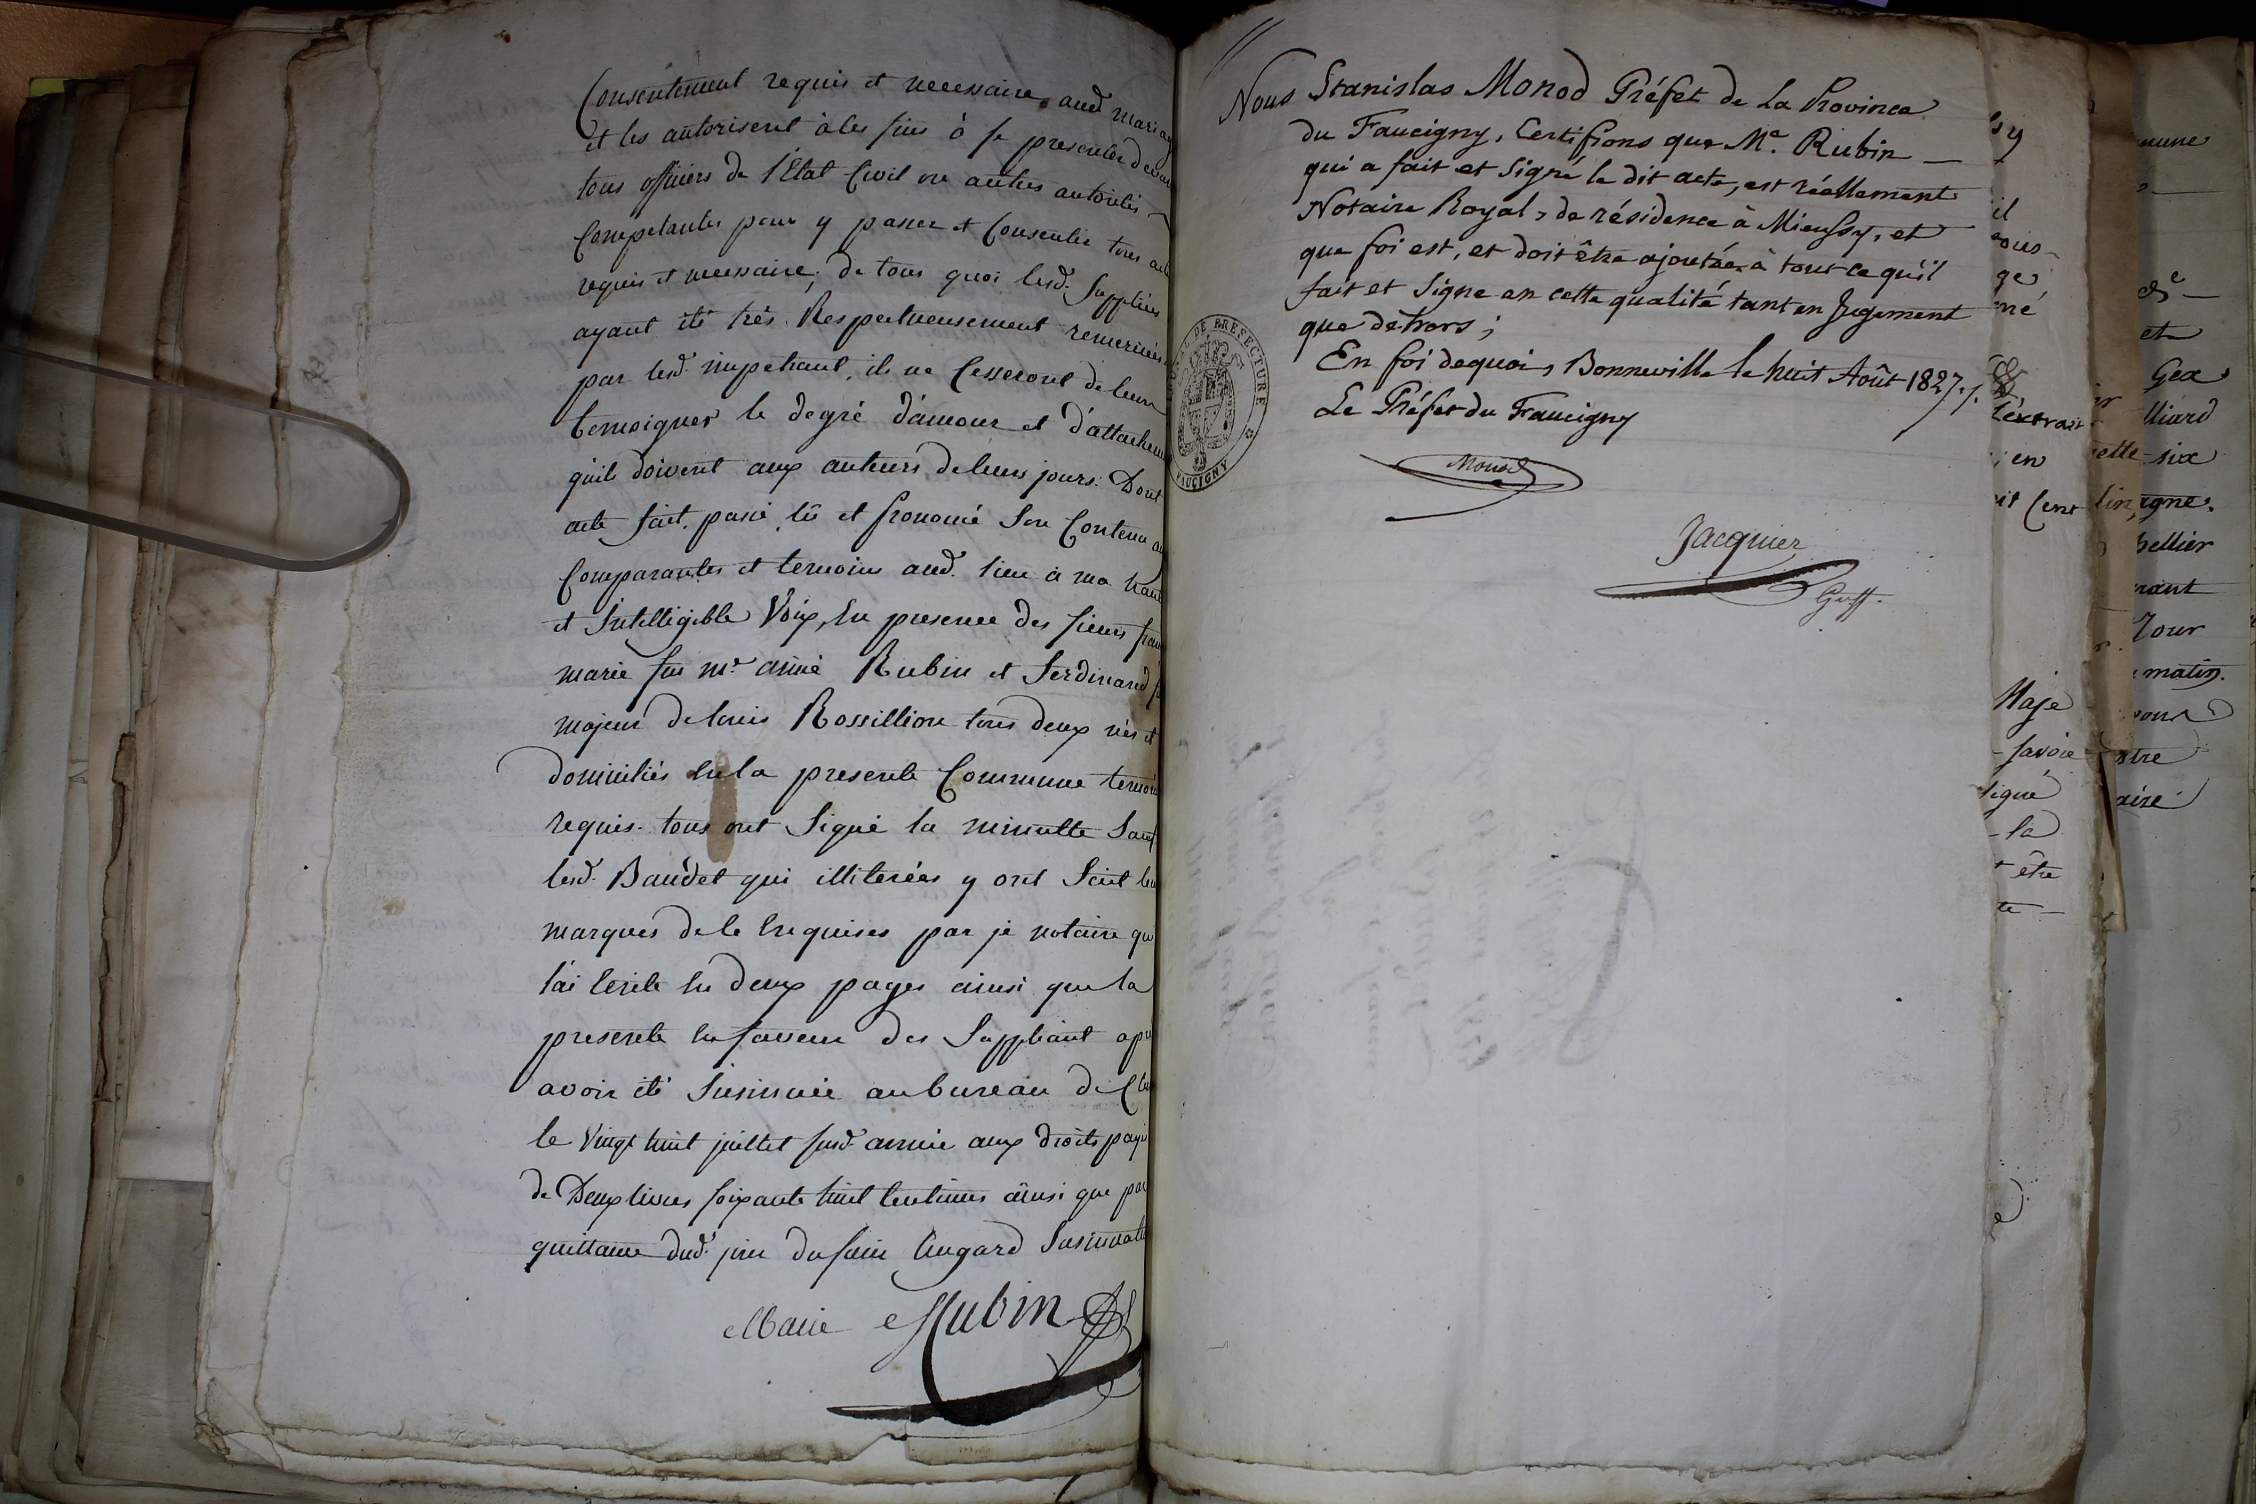 Consentement requis et necessaire aud. mariag
et les autorisent à les fins à se presenter devan
tous officiers de l'Etat Civil ou autres autorités
Competantes pour y passer et Consentir tous act
requis et necessaire; de tous quoi lesd. Suppliés
ayant été très Respectueusement remerciés
par lesd. impetrant, ils ne Cesseront de leur
temoigner le degré d'amour et d'attachem
qu'ils doivent aux auteurs de leurs jours. Dont
acte fait, passé, lû et prononcé son Contenu au
Comparantes et temoins aud. lieu à ma haut
et Intelligible Voix, En presence des sieurs fran
marie feu me. aimé Rubin et ferdinand fi
majeur de louis Rossillion tous deux nés et
domiciliés En la presente Commune temoin
requis. tous ont Signé la minutte Sauf
lesd. Baudet qui illiterées y ont fait leu
marques de le Enquises par je notaire qui
l'ai Ecrite En deux pages ainsi que la
presente En faveur des Suppliant apr
avoir été Insinuée au bureau de Clu
le Vingt huit juillet susd. année aux droits payé
de Deux livres soixante huit Centimes ainsi que par
quittance dud. jour Insinuat
Marie Rubin
Nous Stanislas Monod Préfet de La Province
du Faucigny, Certifions que Me. Rubin
qui a fait et signé le dit acte, est réellement
Notaire Royal, de résidence à Mieussy, et
que foi est, et doit être ajoutée à tout ce qu'il
fait et Signe en cette qualité tant en Jugement
que dehors;
En foi dequoi, Bonneville le huit Août 1827./.
Le Préfet du Faucigny
Monod
DE PREFECTURE
FAUCIGNY
Jacquier
Greff.
il
ge
l'extrait
en
it Cent
Maje
savoie
signé
la
être
te
et
Gex
lliard
ette-six
agne.
bellier
Jour
matin.